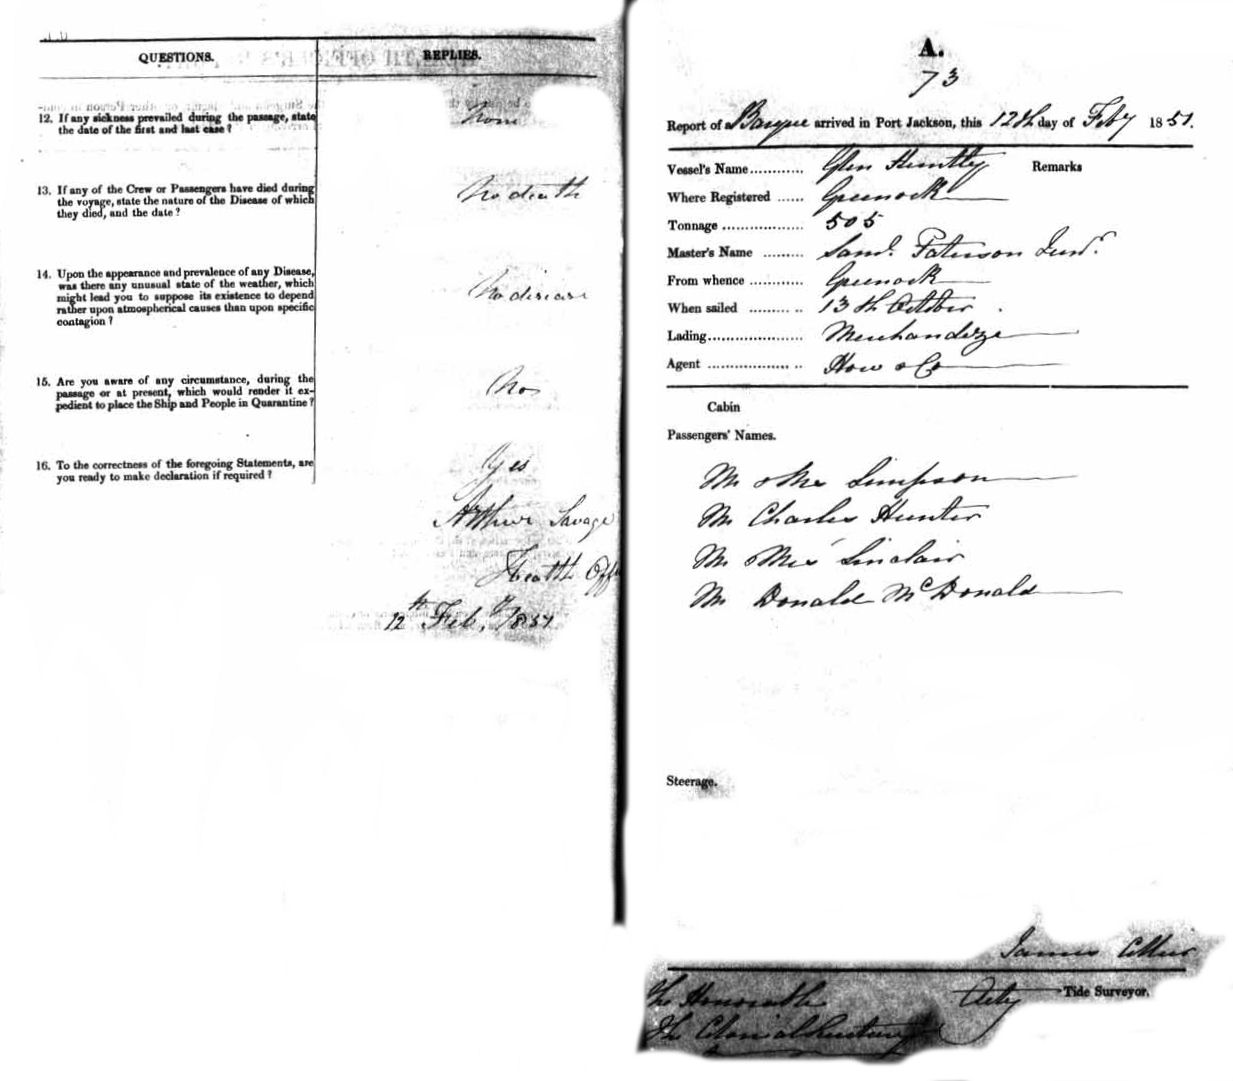 QUESTIONS.
REPLIES.
12. If any sickness prevailed during the passage, state
the date of the first and last case ?
None
13. If any of the Crew or Passengers have died during
the voyage, state the nature of the Disease of which
they died, and the date ?
No death
14. Upon the appearance and prevalence of any Disease,
was there any unusual state of the weather, which
might lead you to suppose its existence to depend
rather upon atmospherical causes than upon specific
contagion ?
No disease
15. Are you aware of any circumstance, during the
passage or at present, which would render it ex-
pedient to place the Ship and People in Quarantine ?
No
16. To the correctness of the foregoing Statements, are
you ready to make declaration if required ?
Yes
Arthur Savage
Health Offr
12th Feby/1851
A.
73
Report of a Barque arrived in Port Jackson, this 12th day of Feby 1851.
Vessel's Name............ Glen Huntley Remarks
Where Registered ...... Greenock
Tonnage .................. 505
Master's Name ......... Saml. Paterson Junr.
From whence ............ Greenock
When sailed ......... .. 13th October
Lading..................... Merchandize
Agent .................. .. How & Co
Cabin
Passengers' Names.
Mr & Mrs Simpson
Mr Charles Hunter
Mr & Mrs Sinclair
Mr Donald McDonald
Steerage.
James
The Honorable
Actg Tide Surveyor.
The Colonial Secretary